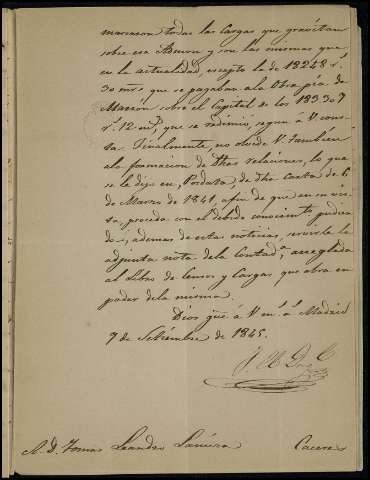 marcaron todas las Cargas que gravitan
sobre esa y son las mismas que
en la actualidad, escepto la de 18248 r.s
30 mrs que se pagaban ala Obra pia de
sobre el Capital de los 183307
r.s 12 mrs, que se redimió, segun á V. cons
ta. Finalmente, no olvide V. tambien
ala formacion de dhas relaciones, lo que
se le dijo en Postdata, de dha Carta de 6
de Marzo de 1841, afin de que en su vis
ta, proceda con el debido conocimto pudien
do, ademas de estas noticias, servirle la
adjunta nota dela Contad.a arreglada
al Libro de Censos y Cargas que obra en
poder dela misma.
Dios gue á V m.s a.s Madrid
9 de Setiembre de 1845.
S. D. Tomas Leandro
Caceres